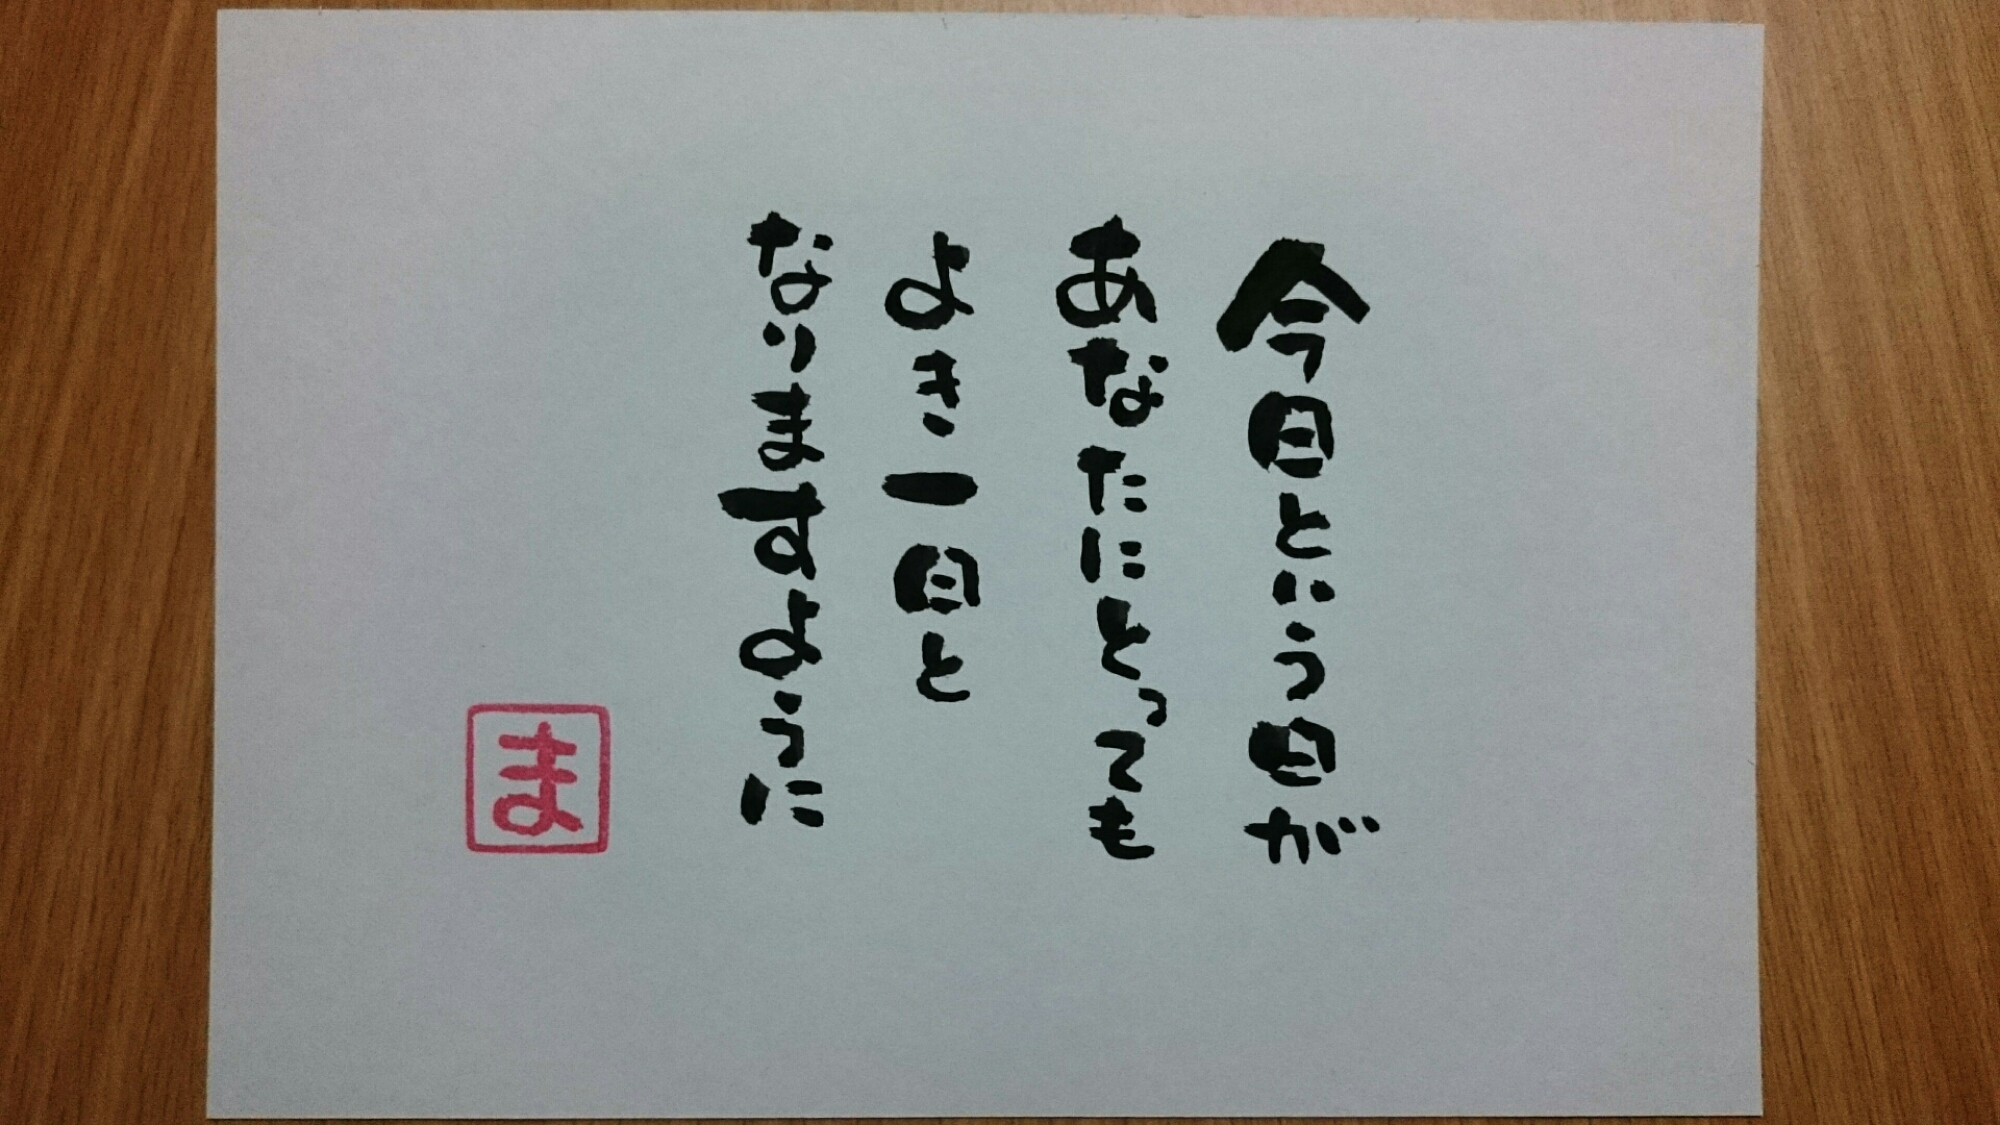 今日という日が
あなたにとっても
よき一日と
なりますように
ま